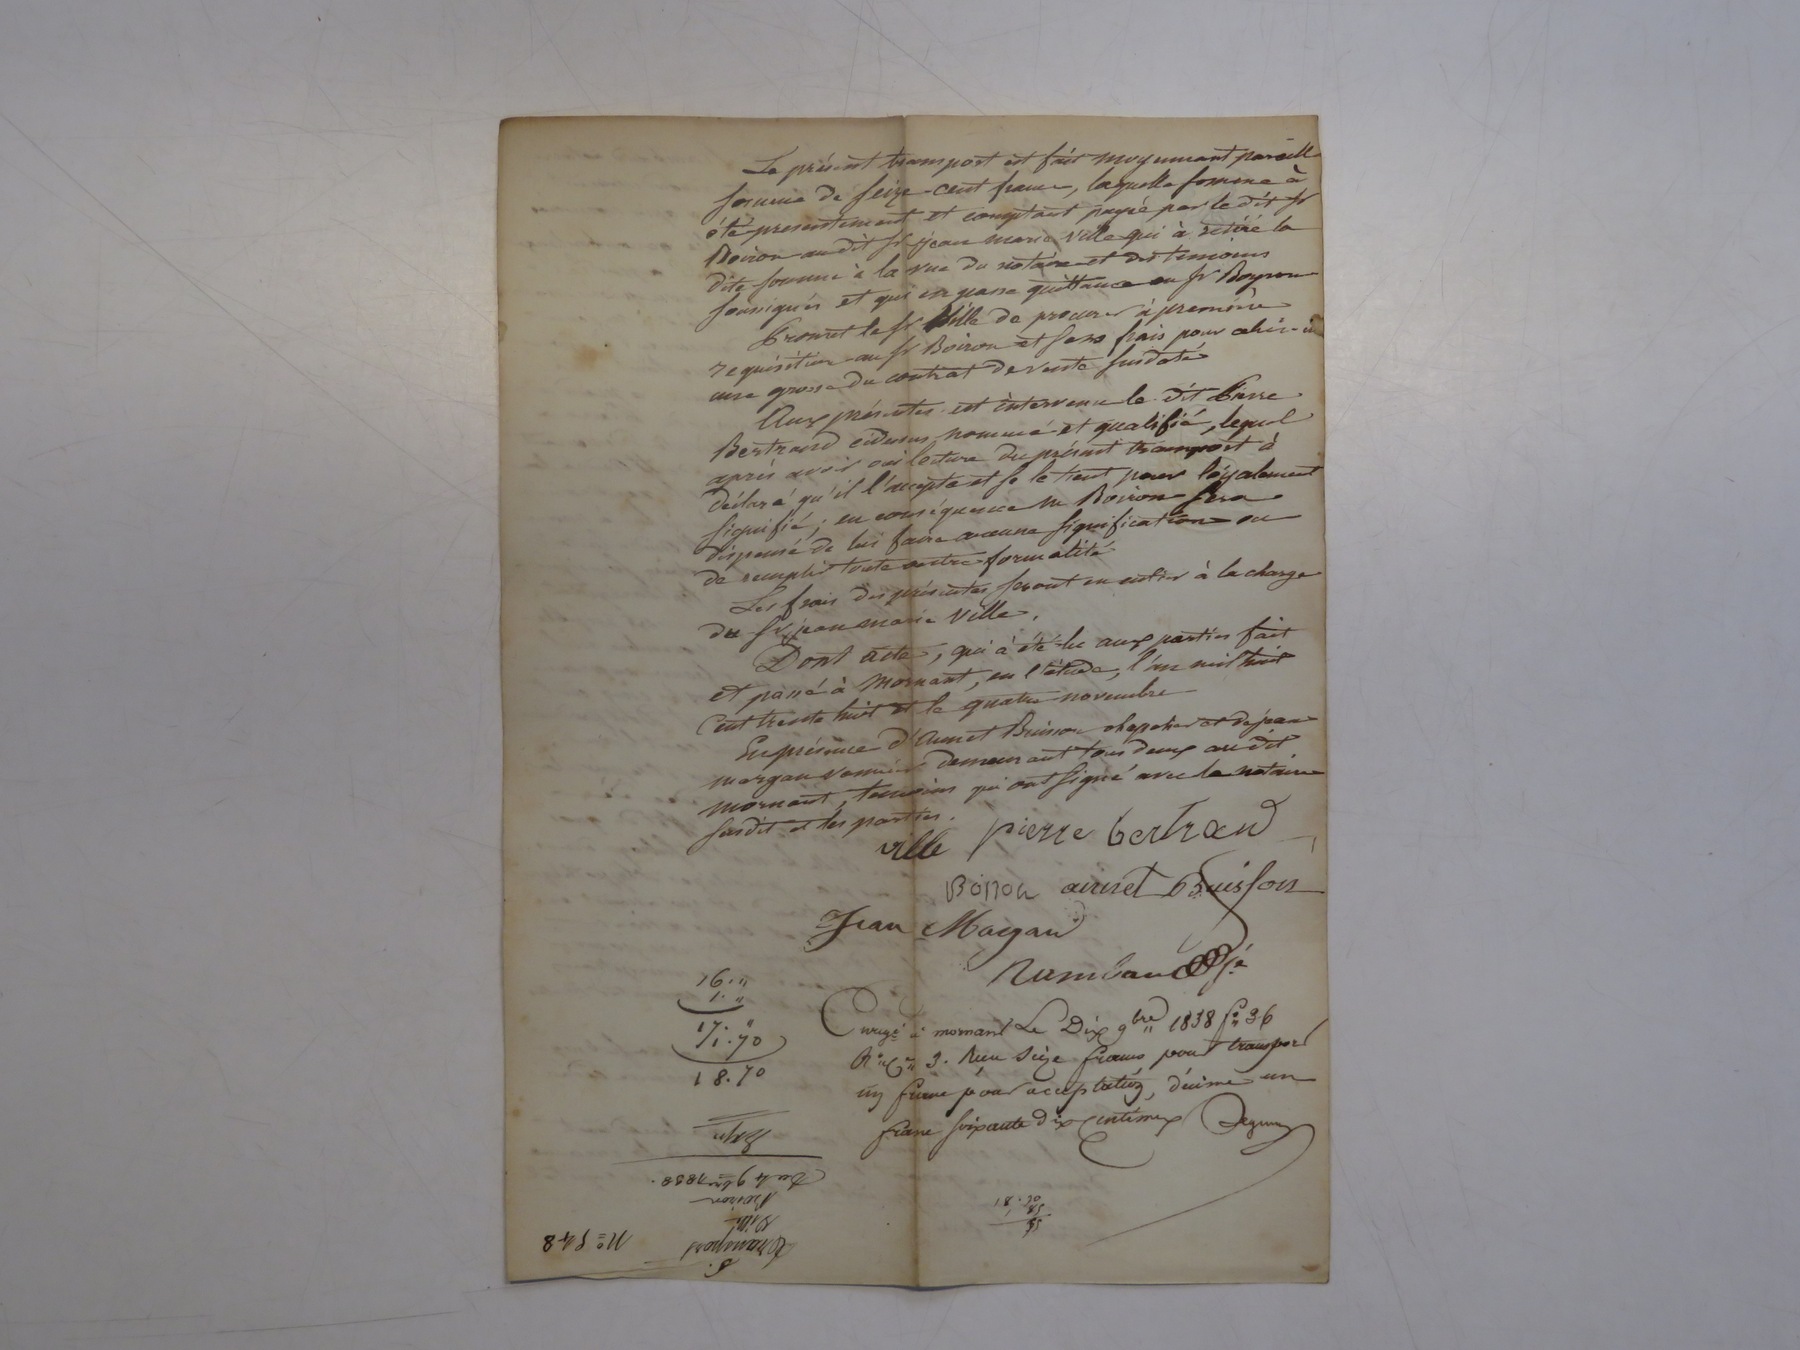 Le présent transport est fait moyennant pareille
somme de seize-cent francs, laquelle somme à
été présentement et comptant payée par le dit Sr
Boiron au dit Sr jean marie Ville qui à retiré la
dite somme à la vue du notaire et des temoins
soussignés et qui en passe quittance au Sr Boyron
Promet le Sr Ville de procurer à première
requisition au Sr Boiron et sans frais pour celui-ci
une grosse du contrat de vente susdaté
Aux présentes est intervenu le dit Pierre
Bertrand cidessus nommé et qualifié, lequel
après avoir oui lecture du présent transport à
déclaré qu'il l'accepte et se le tient pour légalement
signifié; en conséquence Mr Boiron sera
dispensé de lui faire aucune signification ou
de remplir toute autre formalité
Les frais des présentes seront en entier à la charge
du Sr jean marie Ville.
Dont acte, qui à été lu aux parties fait
et passé à Mornant, en l'étude, l'an mil huit
cent trente huit et le quatre novembre
En présence d'Annet Buisson chapelier et de jean
margan demeurant tous deux au dit
Mornant, temoins qui ont signé avec le notaire
susdit et les parties.
ville pierre bertrand
Boiron annet Buisson
Jean Margan
16. "
1. "
17. "
1. 70
18. 70
à mornant Le Dix 9bre 1838 fo 36
3. Reçu seize francs pour transport
un franc pour acceptation, décime un
franc soixante dix centimes
Du 4 9bre 1838.
Boiron
Ville
Transport
No 548
18. 70